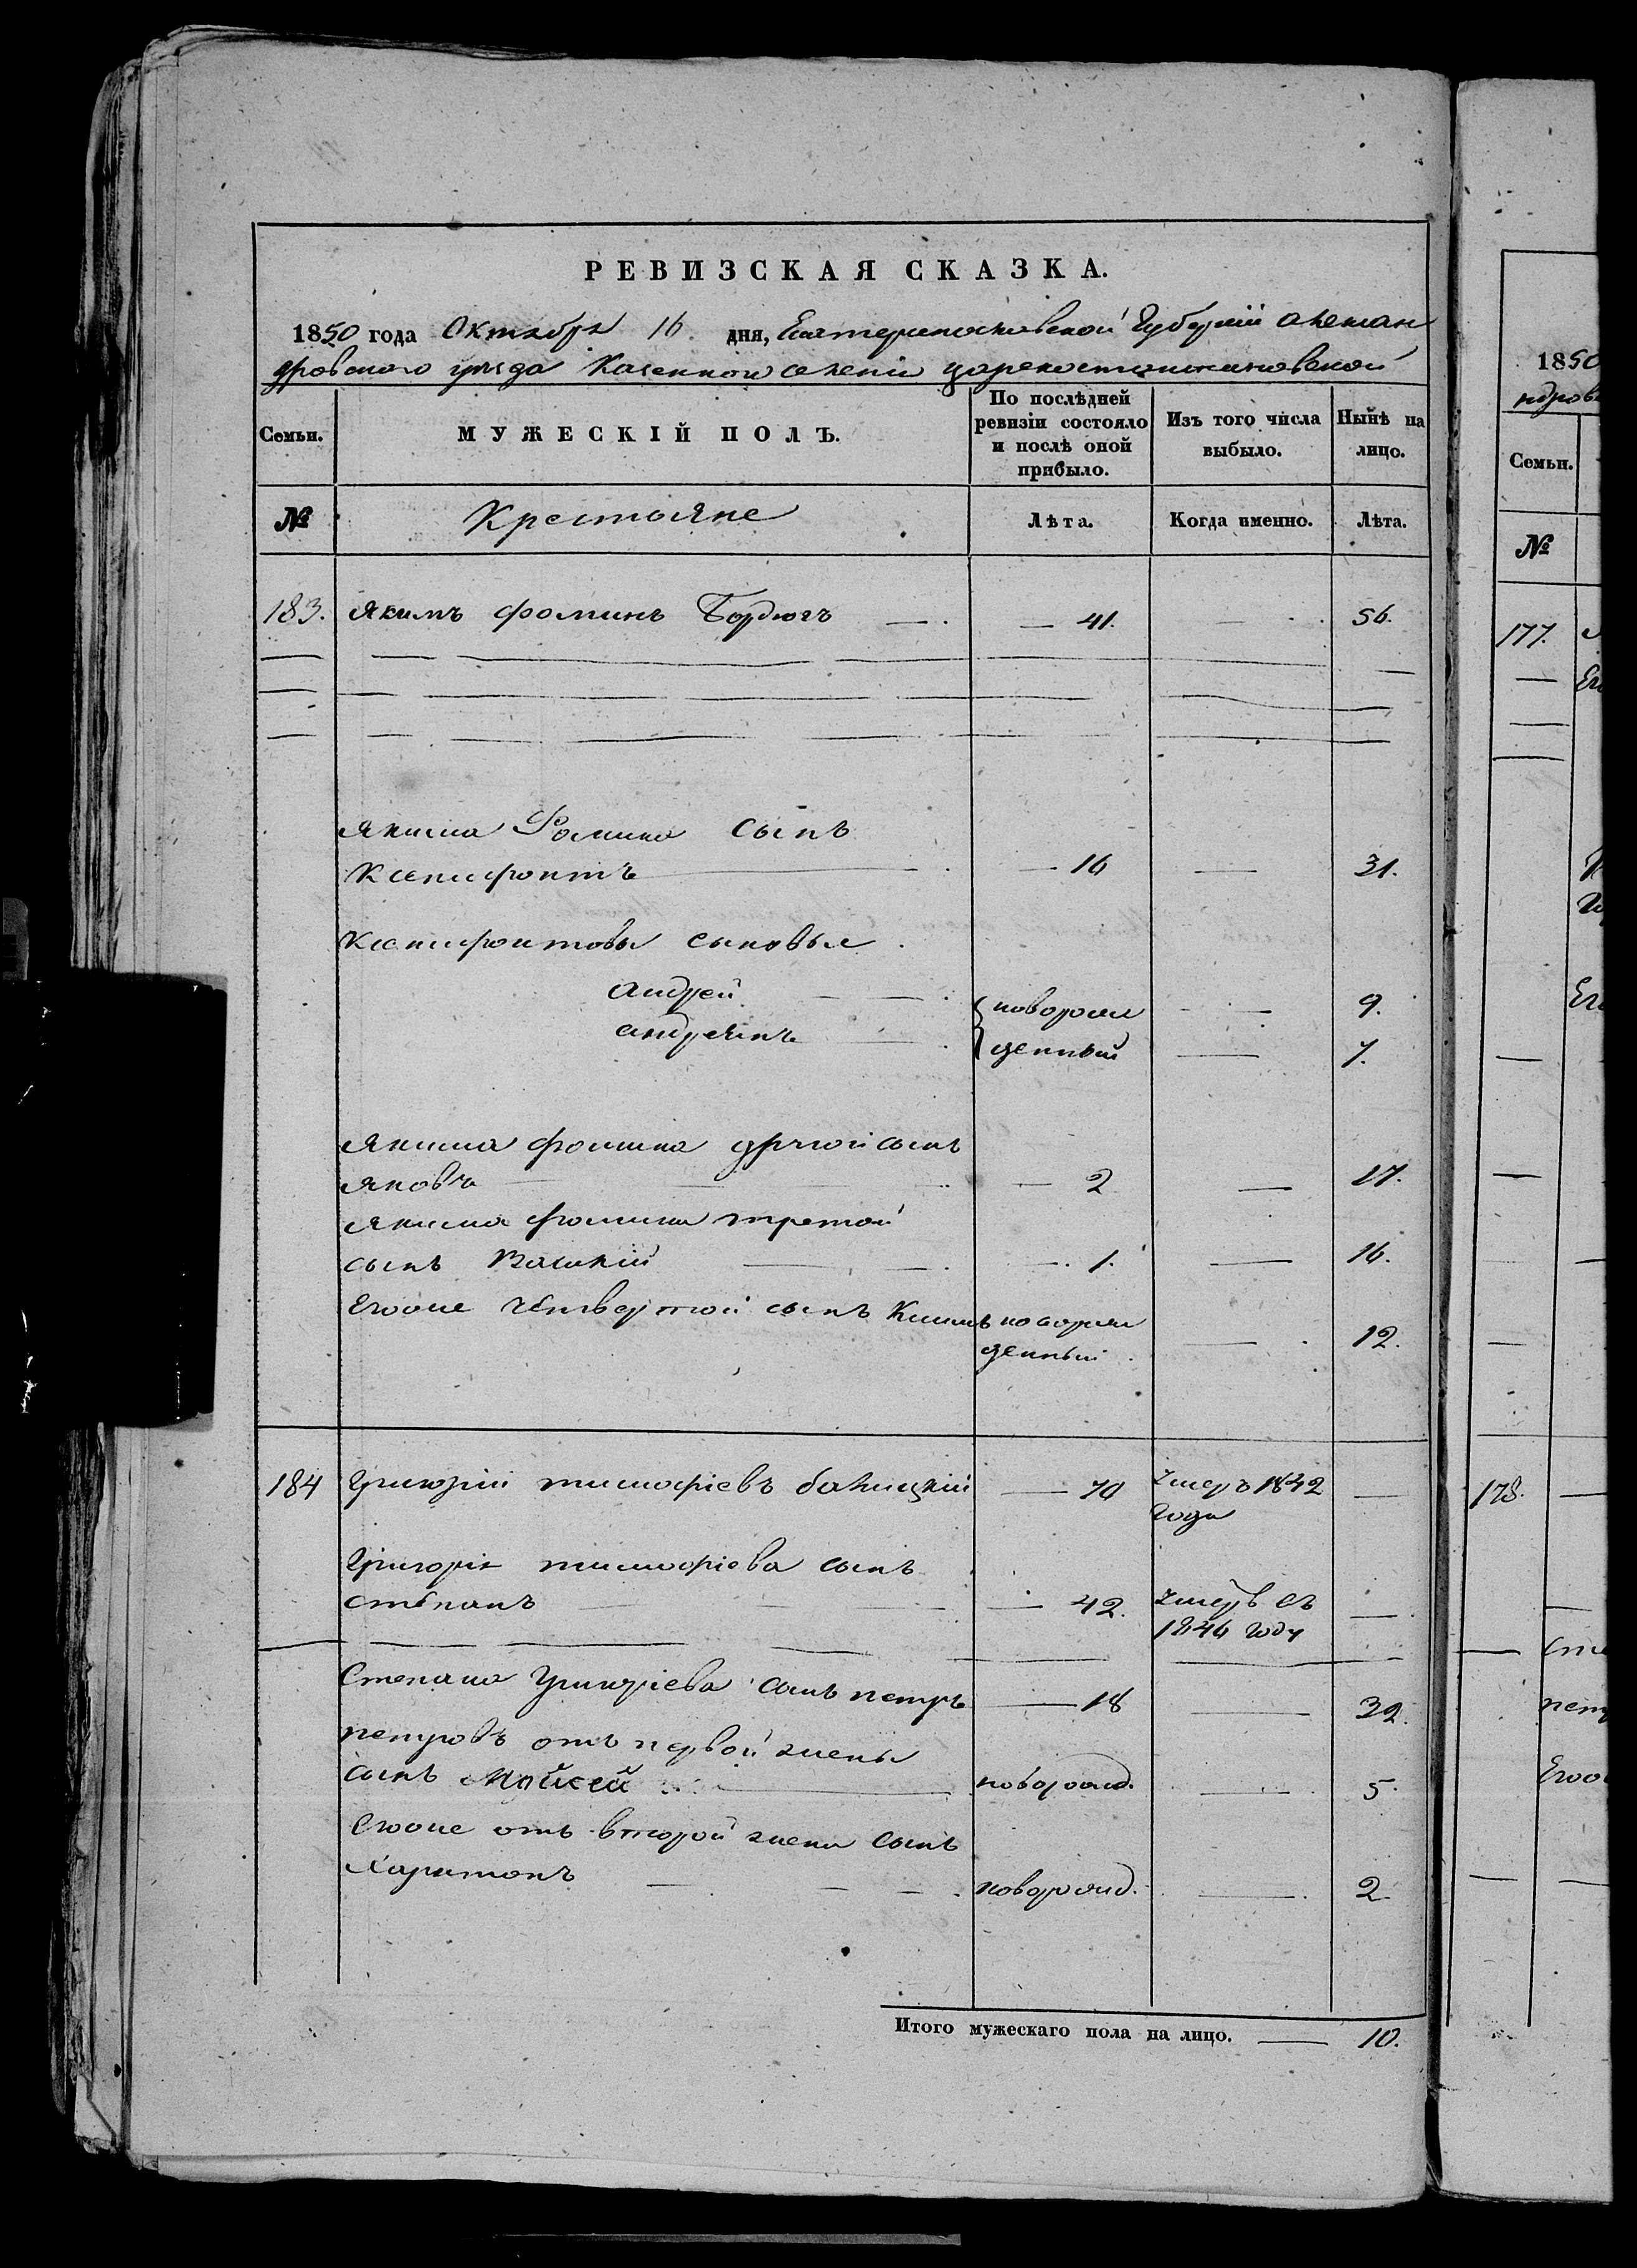 РЕВИЗСКАЯ СКАЗКА.
1850 года Октября 16 дня, Екатеринославской Губерніи Алексан
дровского уезда Казенной селенія Цареконстантиновской
Семьи. МУЖЕСКІЙ ПОЛЪ. По послѣдней ревизіи состояло и послѣ оной прибыло. Изъ того числа выбыло. Нынѣ на лицо.
№ Крестьяне Лѣта. Когда именно. Лѣта.
183. Якимъ Фоминъ Бордюгъ — 41. — 56.
Якима Фомина сынъ
Ксенифонтъ — 16 — 31.
Ксенифонтовы сыновья
Андрей новорож — 9.
Андреянъ денный — 7.
Якима Фомина другой сынъ
Яковъ — 2 — 17.
Якима Фомина третой
сынъ Василій — 1. — 16.
Егоже четвертой сынъ новорож
денный — 12.
184 Григорій Тимофіевъ 70 умеръ 1842 —
года
Григорія Тимофіева сынъ
Степанъ — 42. умеръ съ —
1846 году
Степана Григоріева сынъ Петръ — 18 — 32.
Петровъ отъ первой жены
сынъ Мойсей — новорожд. — 5.
Егоже отъ второй жены сынъ
Харитонъ — новорожд. — 2.
Итого мужескаго пола на лицо. — 10.
1850
ндров
Семьи.
№
177.
178.
Сте
пет
Егоо